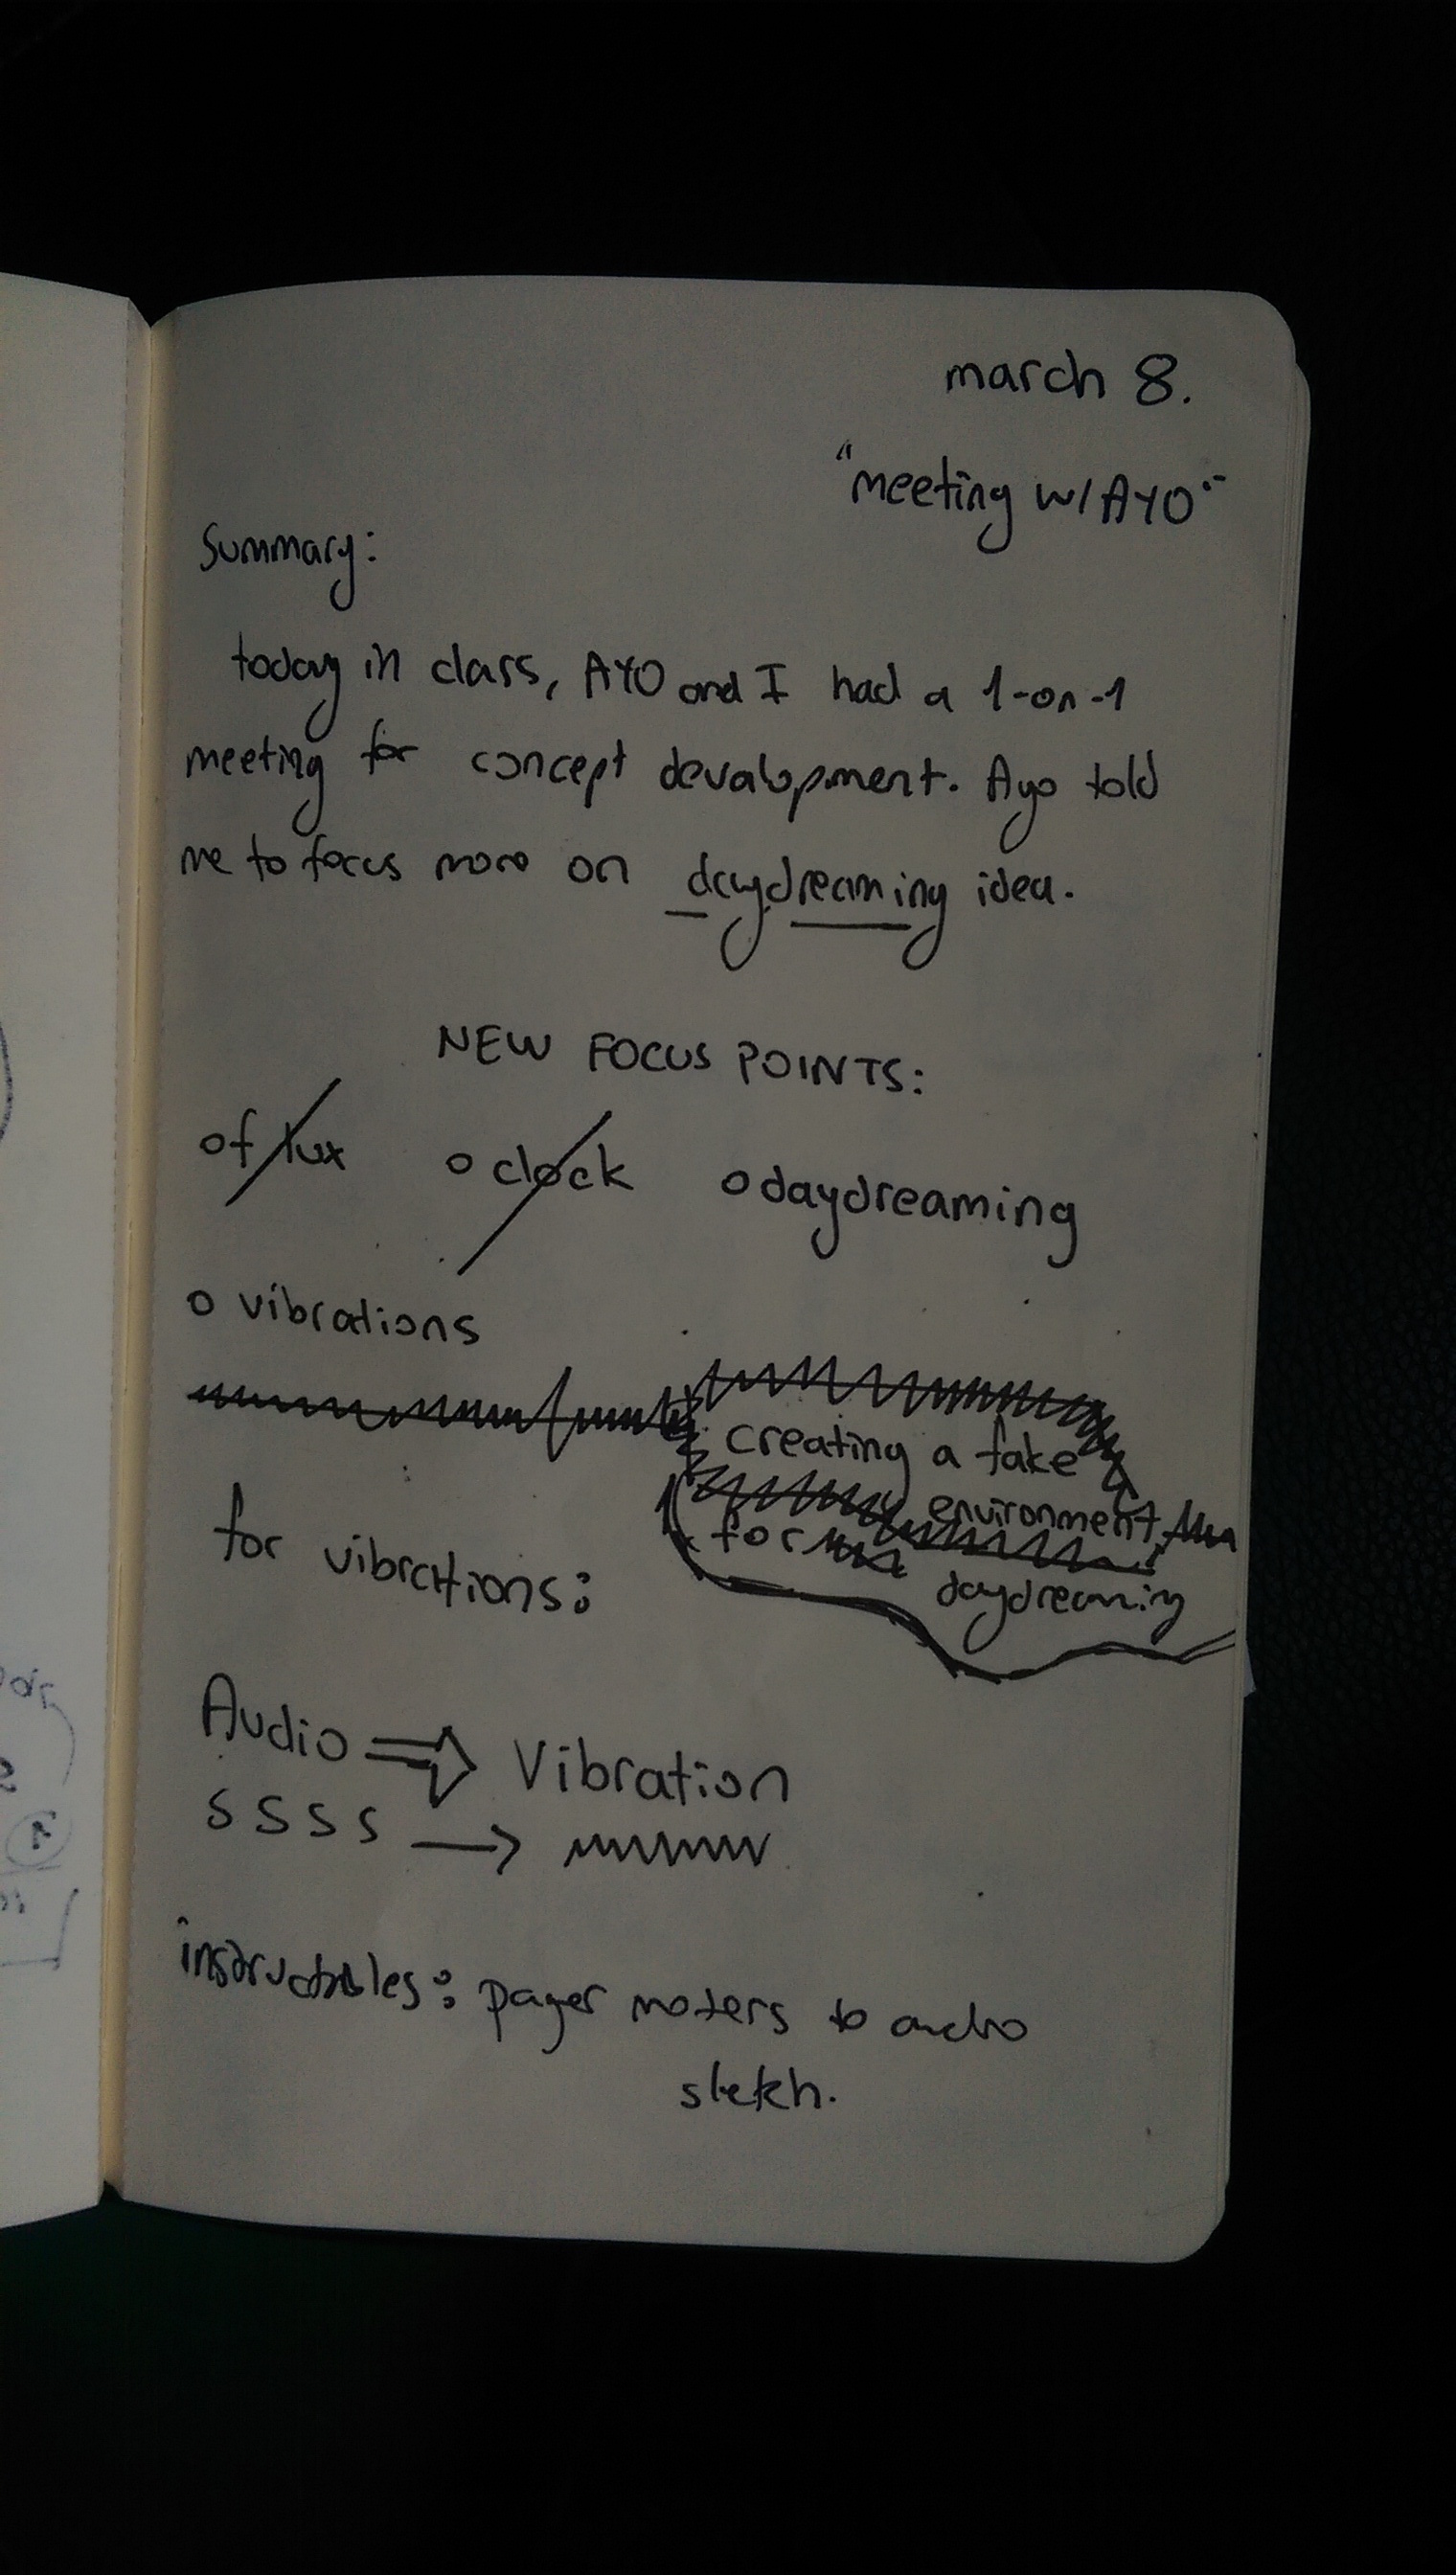 march 8.
"meeting w/ AYO"
Summary:
today in class, AYO and I had a 1-on-1
meeting for concept devalopment. Ayo told
me to focus more on daydreaming idea.
NEW FOCUS POINTS:
o f lux o clock o daydreaming
o vibrations
creating a fake
environment
for
daydreaming
for vibrations:
Audio ⇒ Vibration
S S S S →
instructables: pager moters to audio
sketch.